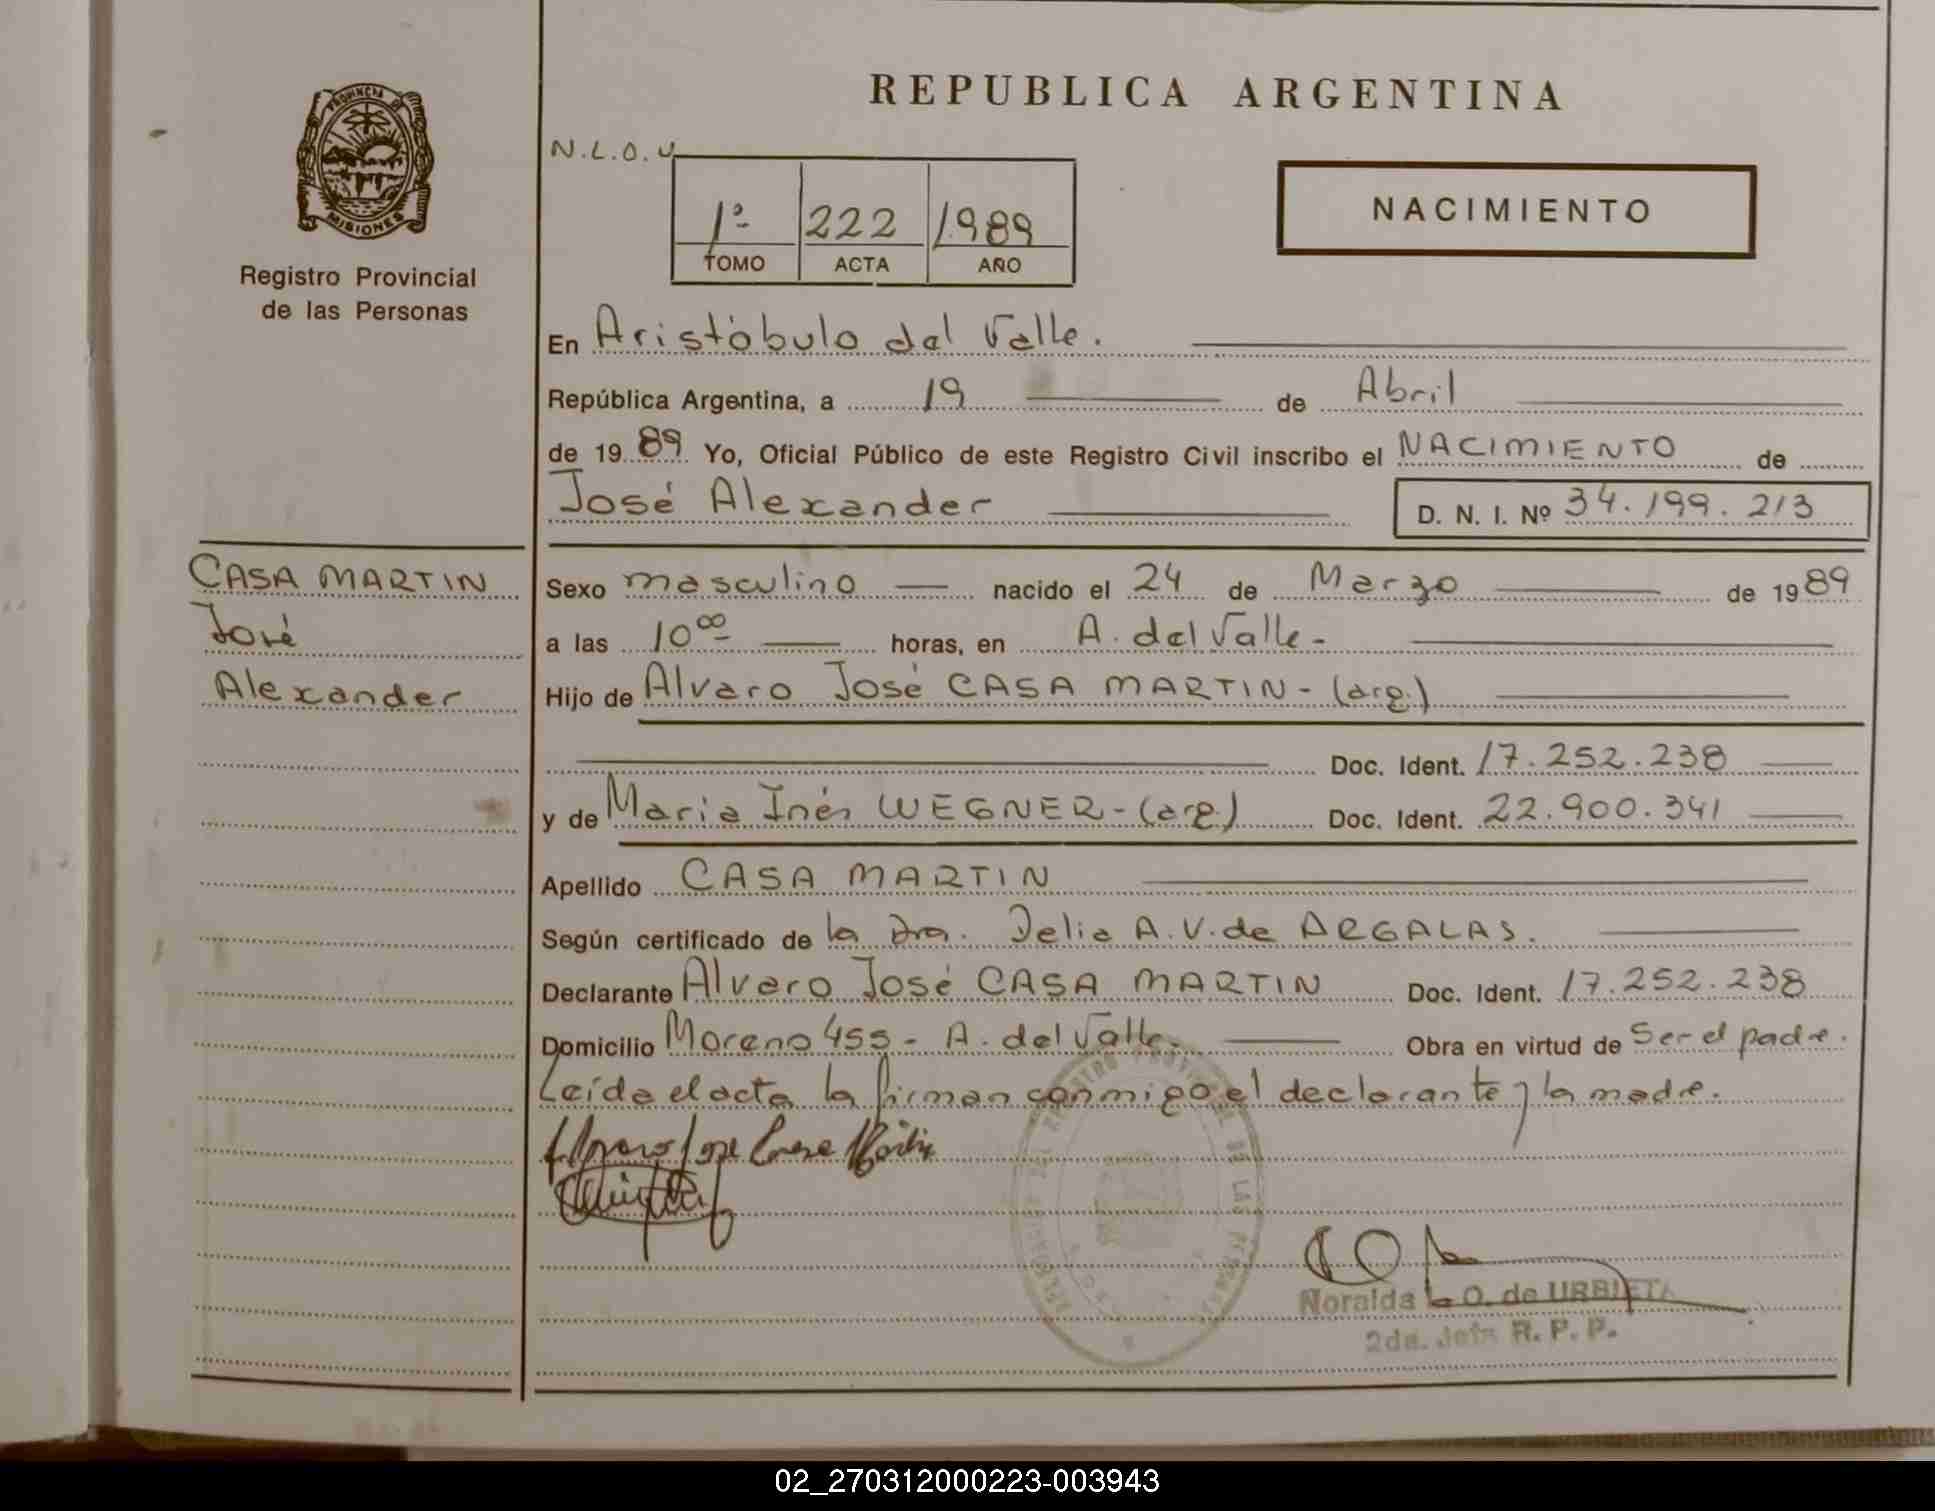 PROVINCIA DE
MISIONES
Registro Provincial
de las Personas
REPUBLICA ARGENTINA
N.L.O.U
1º 222 1989
TOMO ACTA AÑO
NACIMIENTO
En Aristóbulo del Valle.
República Argentina, a 19 de Abril
de 1989 Yo, Oficial Público de este Registro Civil inscribo el NACIMIENTO de
José Alexander
D. N. I. Nº 34.199.213
CASA MARTIN
José
Alexander
Sexo masculino nacido el 24 de Marzo de 1989
a las 10⁰⁰ horas, en A. del Valle-
Hijo de Alvaro José CASA MARTIN- (arg.)
Doc. Ident. 17.252.238
y de Maria Inés WEGNER-(arg.) Doc. Ident. 22.900.341
Apellido CASA MARTIN
Según certificado de la Dra. Delia A.V. de ARGALAS.
Declarante Alvaro José CASA MARTIN Doc. Ident. 17.252.238
Domicilio Moreno 455- A. del Valle. Obra en virtud de Ser el padre.
Leída el acta la firman conmigo el declarante y la madre.
Alvaro Jose Casa Martin
Noralda L. O. de URBIETA
2da. Jefa R. P. P.
02_270312000223-003943